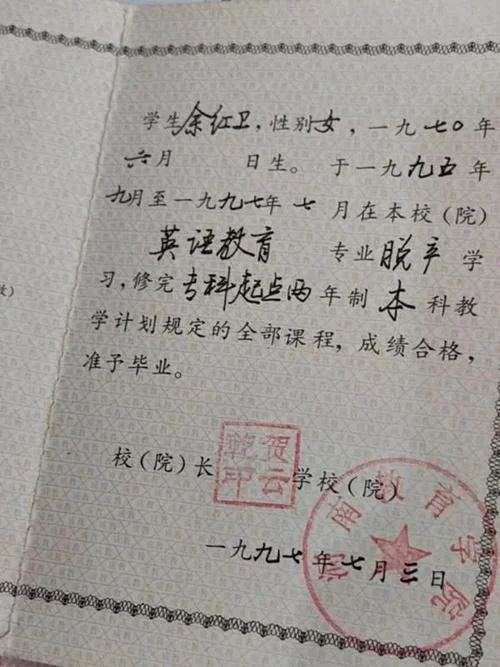 学生余红卫，性别女，一九七〇年
六月 日生。于一九九五年
九月至一九九七年七月在本校（院）
英语教育 专业脱产学
习，修完专科起点两年制本科教
学计划规定的全部课程，成绩合格，
准予毕业。
校（院）长 贺云乾印 学校（院）
南教育学院
一九九七年七月三日